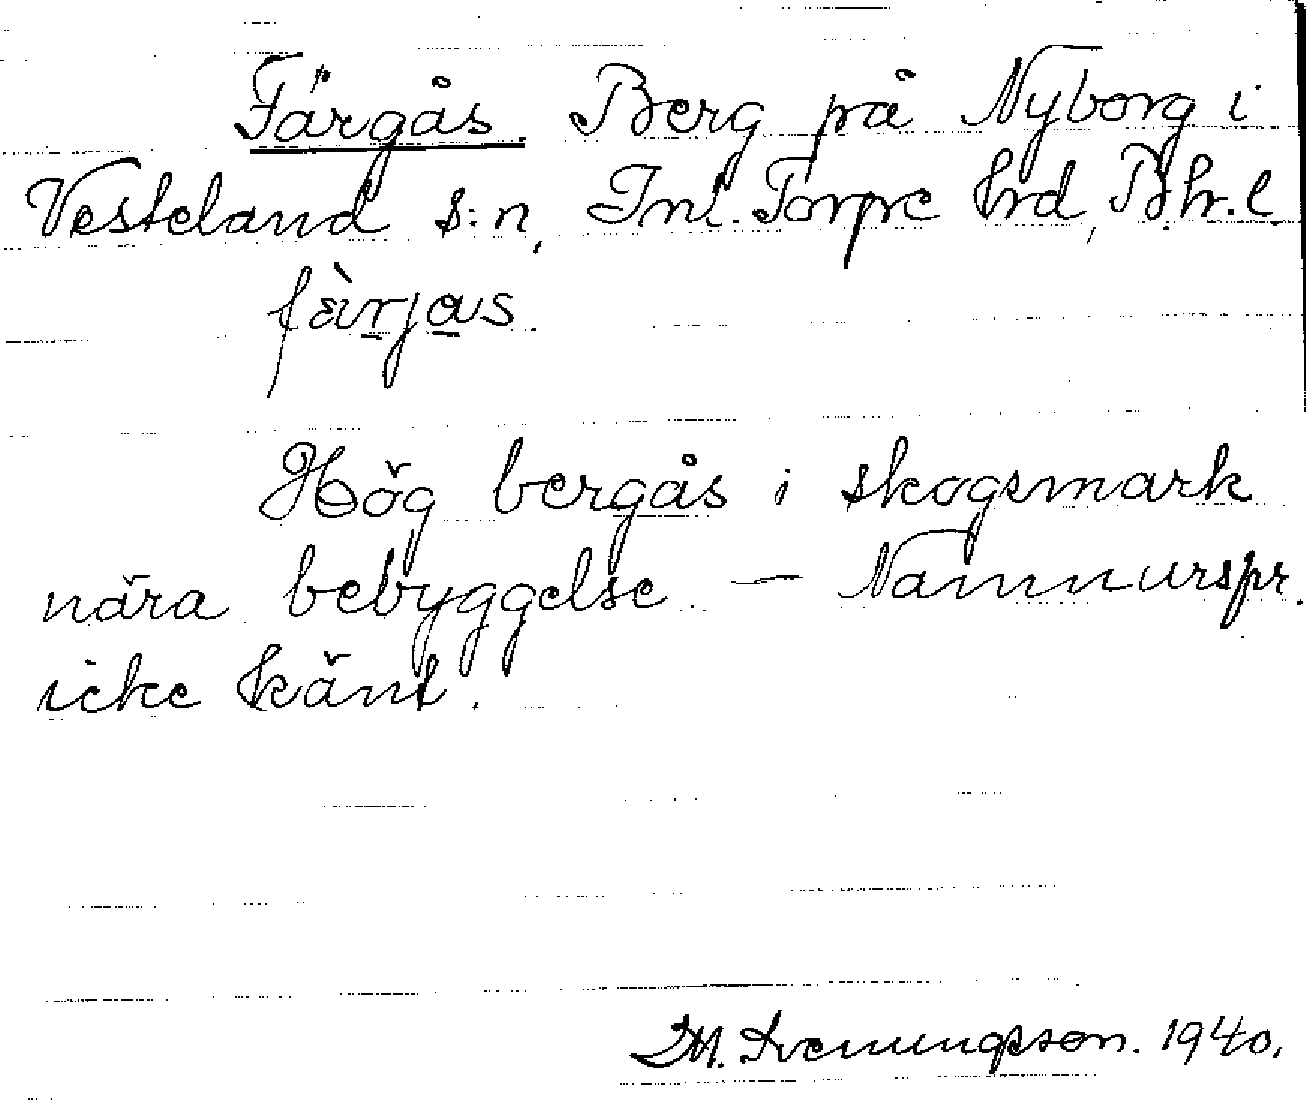 Färgås. Berg på Nyborg i
Vesteland s:n, Inl. Torpe hrd, Bhr. l.
fàrjas
Hög bergås i skogsmark
nära bebyggelse. — Namnurspr.
icke känt.
M. Svenungsson. 1940.